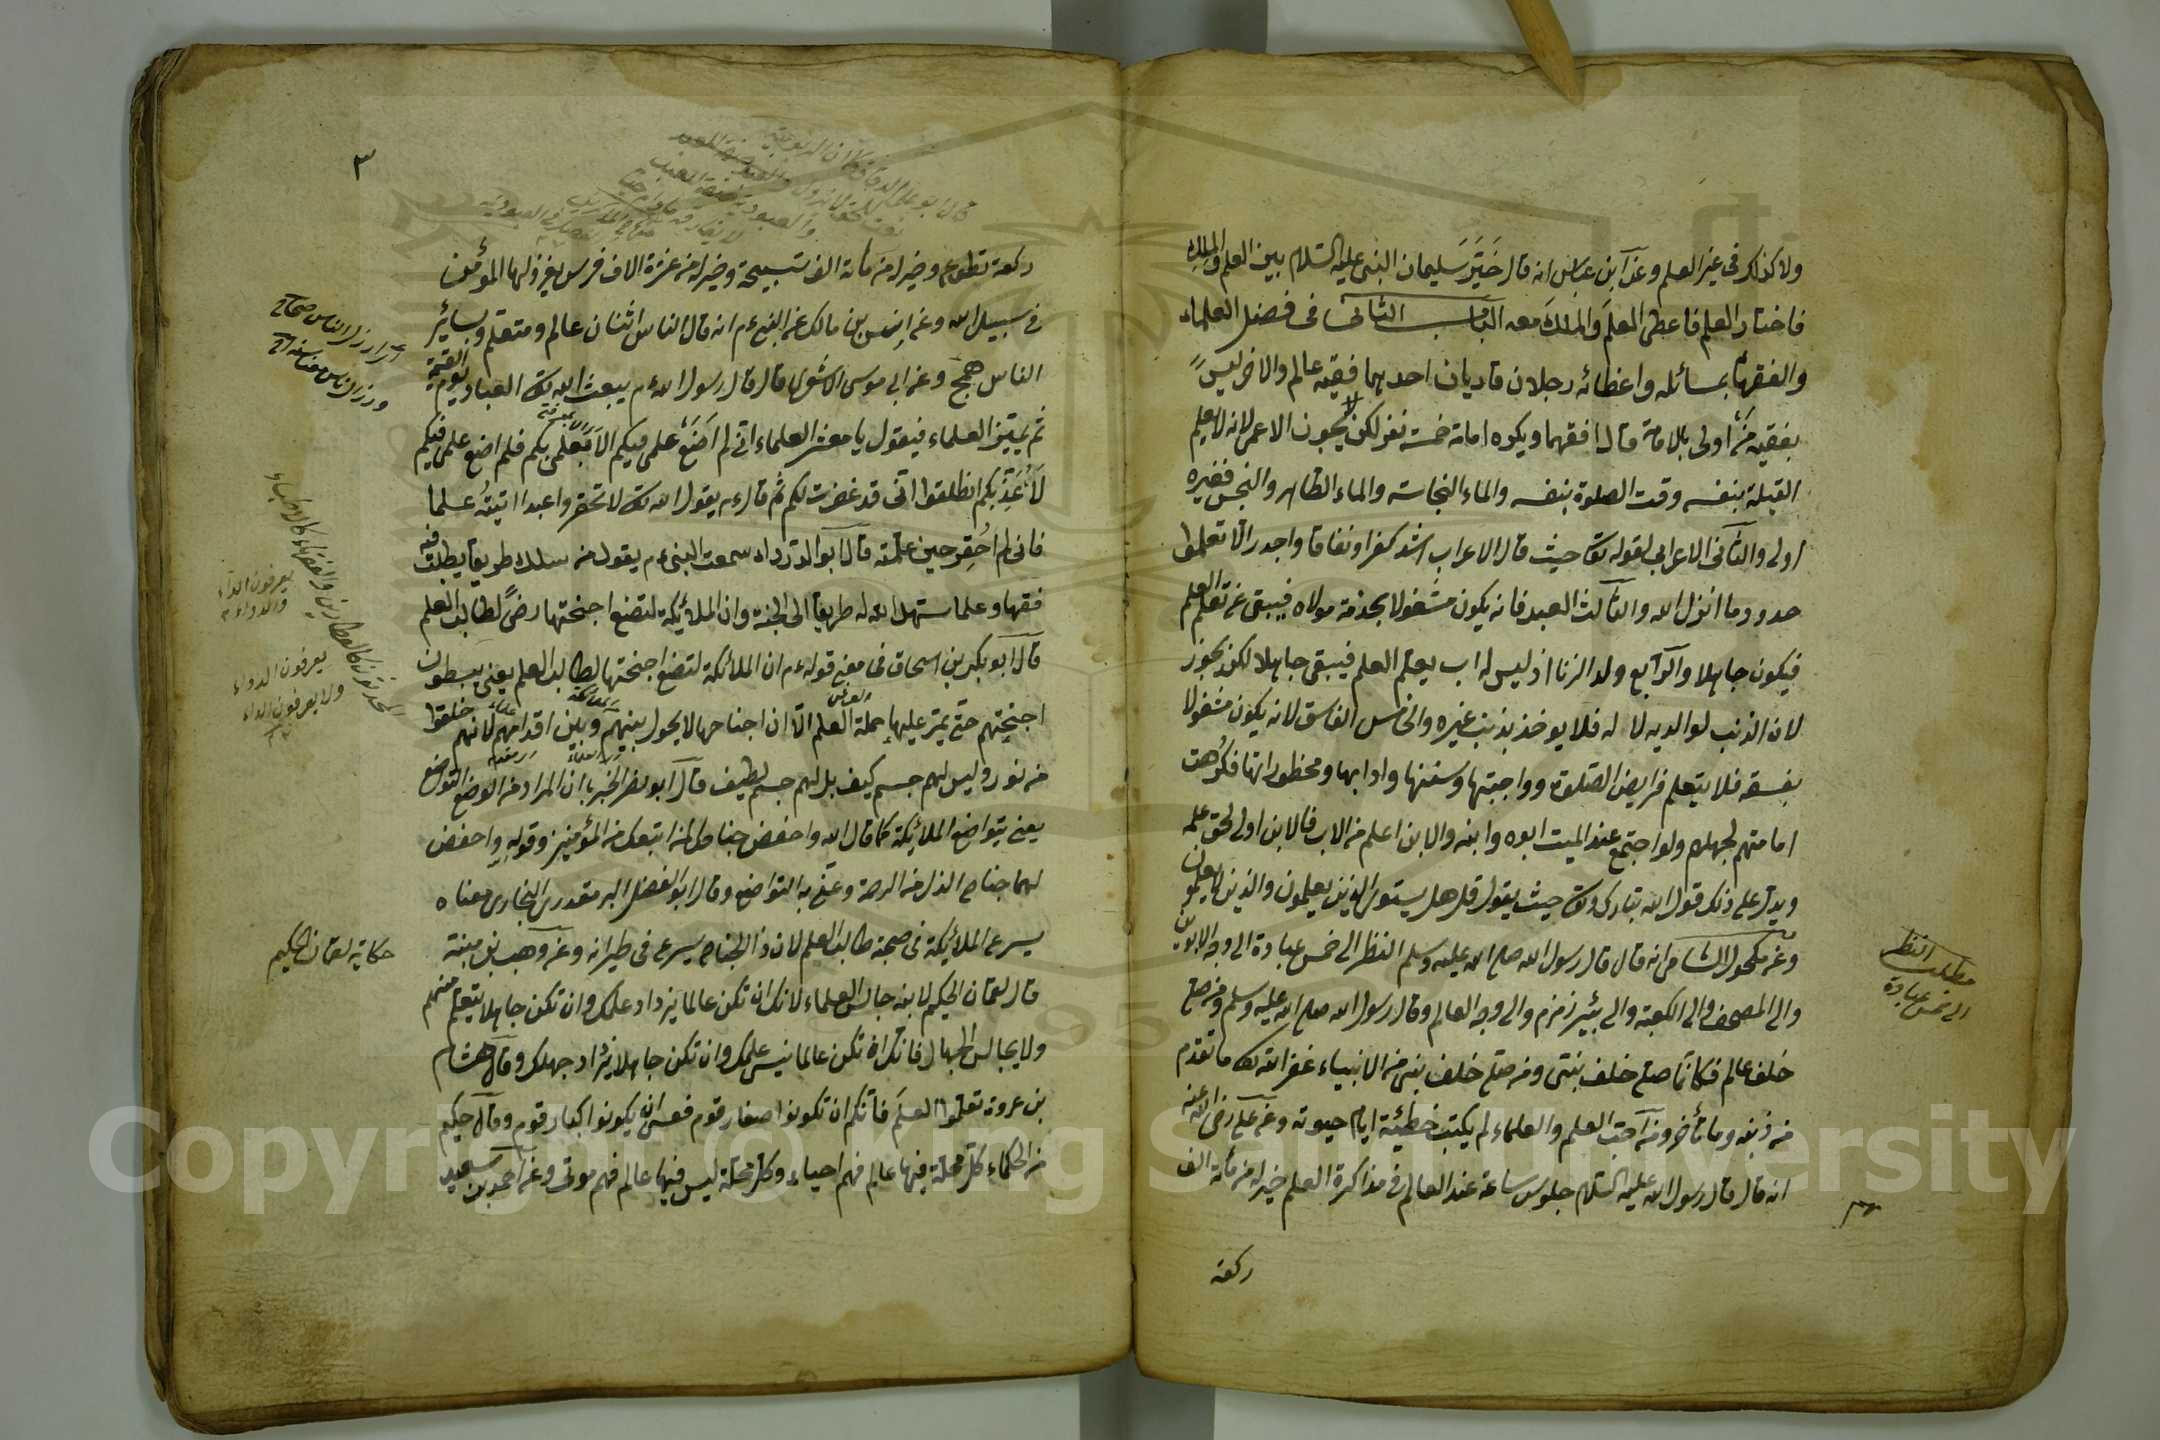 ولا كذلك في غير العلم وعن ابن عباس انه قال خير سليمان النبي عليه السلام بين العلم والملك
فاختار العلم فاعطى العلم والملك معه الباب الثاني في فضل العلماء
والفقهاء بمسائله واعطائه رجلان قاديان احدهما فقيه عالم والاخر ليس
بفقيه من اولى بالامامة قال افقهما ويكره امامة خمسة نفر لكن يجوز الاعمى لانه لا يعلم
القبلة بنفسه وقت الصلوة بنفسه والماء النجاسة والماء الطاهر والنجس فغيره
اولى والثاني الاعرابي لقوله تعالى حيث قال الاعراب اشد كفرا ونفاقا واجدر الا تعلموا
حدود ما انزل الله والثالث العبد فانه يكون مشغولا بخدمة مولاه فيبقى عن تعلم العلم
فيكون جاهلا والرابع ولد الزنا اذ ليس له اب يعلم العلم فيبقى جاهلا لكن يجوز
لان الذنب لوالديه لا له فلا يوخذ بذنب غيره والخامس الفاسق لانه يكون مشغولا
بفسقه فلا يتعلم فرايض الصلوة وواجبتها وسننها وادابها ومحظوراتها فكرهت
امامتهم لجهلهم ولو اجتمع عند الميت ابوه وابنه والابن اعلم من الاب فالابن اولى لحق علمه
ويدل على ذلك قول الله تبارك وتعالى حيث يقول قل هل يستوي الذين يعلمون والذين لا يعلمون
وعن مكحول الشامي انه قال قال رسول الله صلى الله عليه وسلم النظر الى خمس عبادة الى وجه الابوين
والى المصحف والى الكعبة والى بئير زمزم والى وجه العالم وقال رسول الله صلى الله عليه وسلم ومن صلى
خلف عالم فكانما صلى خلف نبي ومن صلى خلف نبي من الانبياء غفر الله له ما تقدم
من ذنبه وما تأخر ومن احب العلم والعلماء لم يكتب خطيئة ايام حيوته وعن علي رضي الله عنه
انه قال قال رسول الله عليه السلام جلوس ساعة عند العالم في مذاكرة العلم خير له من مائة الف
ركعة
مطلب النظر
الى خمس عبادة
٣
ركعة تطوع وخير له من مائة الف تسبيحة وخير له من عشرة الاف فرس يغزو لها المؤمن
في سبيل الله وعن انس بن مالك عن النبي عم انه قال الناس اثنان عالم ومتعلم وسائر
الناس همج وعن ابي موسى الاشعري قال قال رسول الله عم يبعث الله تعالى العباد يوم القيمة
ثم يميز العلماء فيقول يا معشر العلماء اني لم اضع علمي فيكم الا لعلمي بكم فلم اضع علمي فيكم
لاعذبكم انطلقوا اني قد غفرت لكم ثم قال عم يقول الله تعالى لا تحقروا عبدا اتيته علما
فاني لم احقره حين علمته قال ابو الدرداء سمعت النبي عم يقول من سلك طريقا يطلب فيه
فقها وعلما سهل الله له طريقا الى الجنة وان الملائكة لتضع اجنحتها رضى لطالب العلم
قال ابو بكر بن اسحاق في معنى قوله عم ان الملائكة لتضع اجنحتها لطالب العلم يعني يبسطون
اجنحتهم حتى يمر عليها حملة العلم الا ان اجناحها لا يحول بينهم وبين اقدامهم لانهم خلقوا
من نور وليس لهم جسم كيف بل لهم جسم لطيف قال ابو نصر الخبر بان المراد من الوضع التواضع
يعني يتواضع الملائكة كما قال الله واخفض جناحك لمن اتبعك من المؤمنين وقوله واخفض
لهما جناح الذل من الرحمة وعنى به التواضع وقال ابو الفضل البرمقدري البخاري معناه
يسرع الملائكة في صحبة طالب العلم لان ذا الجناح يسرع في طيرانه وعن وهب بن منبه
قال لقمان الحكيم لابنه جالس العلماء لانك ان تكن عالما يزداد علمك وان تكن جاهلا يتعلم منهم
ولا يجالس الجهال فانك ان تكن عالما ينس علمك وان تكن جاهلا يزداد جهلك وقال هشام
بن عروة تعلموا العلم فانكم ان تكونوا اصغار قوم فعسى ان يكونوا كبار قوم وقال حكيم
من الحكماء كل محلة فيها عالم فهم احياء وكل محلة ليس فيها عالم فهم موتى وعن احمد بن سعيد
يعرفون الداء
والدواء
يعرفون الدواء
ولا يعرفون الداء
حكاية لقمان الحكيم
Copyright © King Saud University